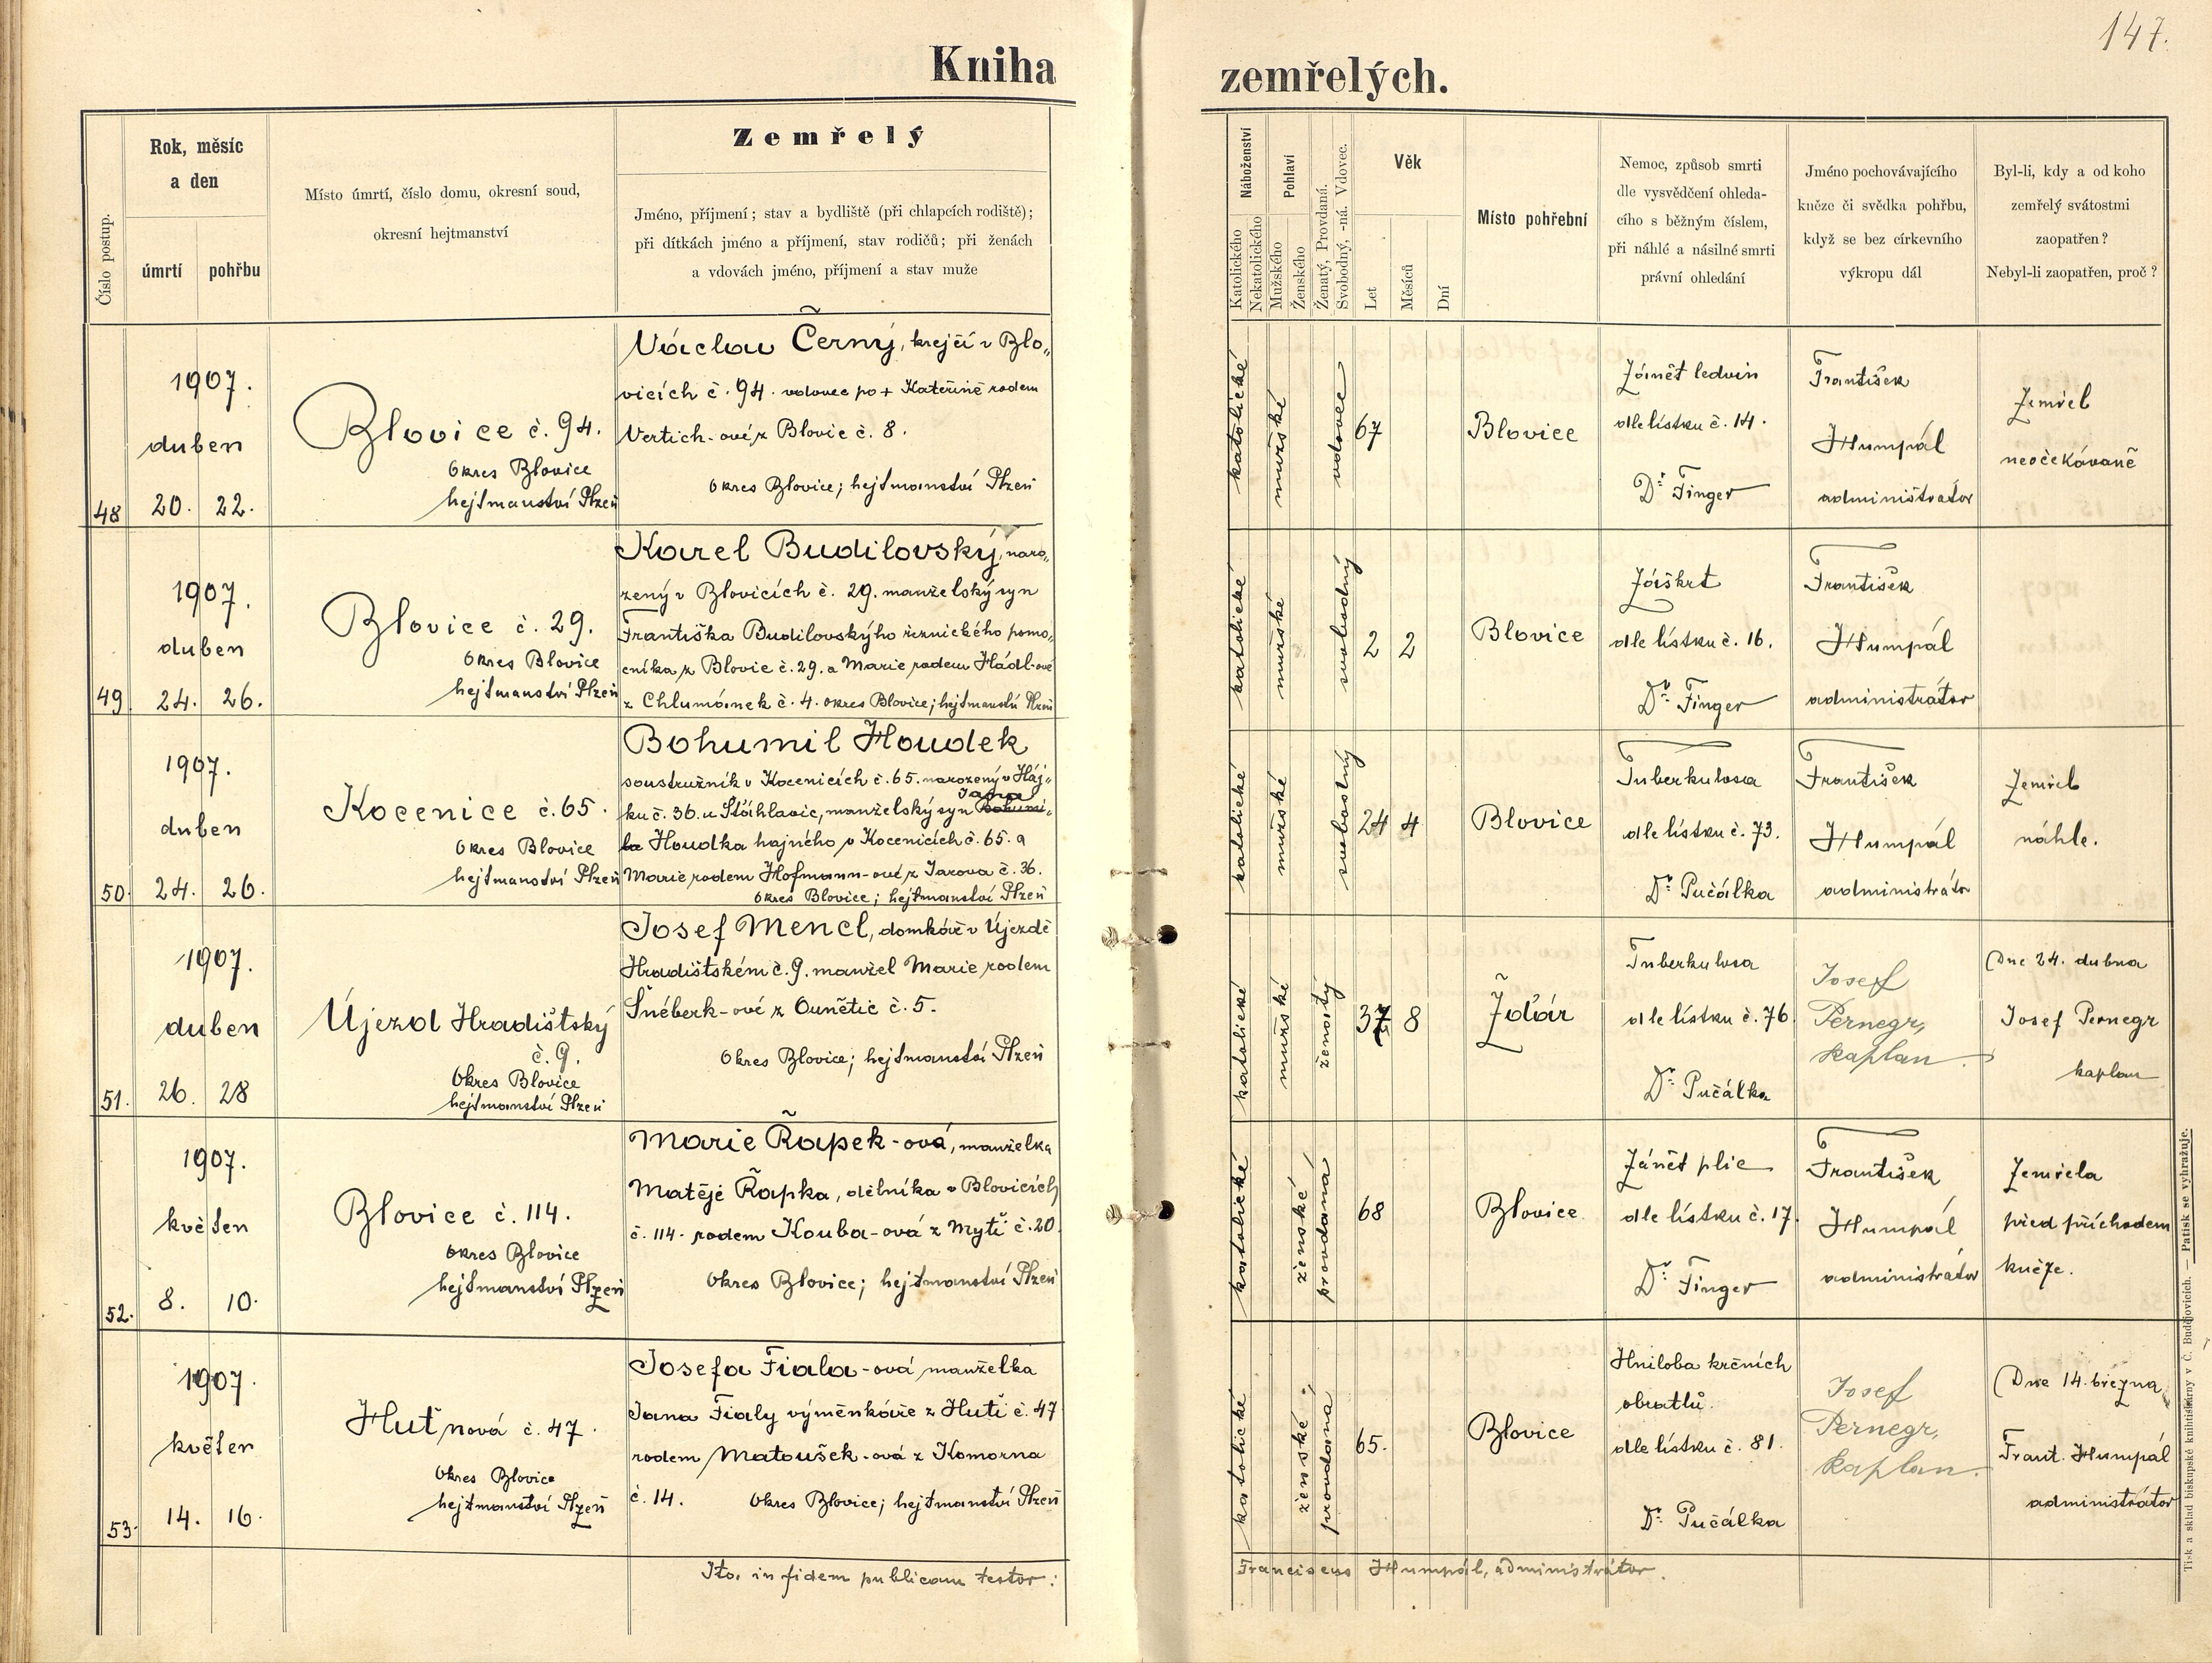 147.
Kniha zemřelých.
Číslo postup.
Rok, měsíc
a den
úmrtí pohřbu
Místo úmrtí, číslo domu, okresní soud,
okresní hejtmanství
Zemřelý
Jméno, příjmení; stav a bydliště (při chlapcích rodiště);
při dítkách jméno a příjmení, stav rodičů; při ženách
a vdovách jméno, příjmení a stav muže
Náboženství
Katolického
Nekatolického
Pohlaví
Mužského
Ženského
Ženatý, Provdaná.
Svobodný, -ná. Vdovec.
Věk
Let
Měsíců
Dní
Místo pohřební
Nemoc, způsob smrti
dle vysvědčení ohleda-
cího s běžným číslem,
při náhlé a násilné smrti
právní ohledání
Jméno pochovávajícího
kněze či svědka pohřbu,
když se bez církevního
výkropu dál
Byl-li, kdy a od koho
zemřelý svátostmi
zaopatřen?
Nebyl-li zaopatřen, proč?
48
1907.
duben
20. 22.
Blovice č. 94.
Okres Blovice
hejtmanství Plzeň
Václav Černý, krejčí v Blo„
vicích č. 94. vdovec po + Kateřině rodem
Vertich-ové z Blovic č. 8.
Okres Blovice; hejtmanství Plzeň
katolické
mužské
vdovec
67
Blovice
Zánět ledvin
dle lístku č. 14.
Dr. Finger
František
Humpál
administrátor
Zemřel
neočekávaně
49
1907.
duben
24. 26.
Blovice č. 29.
Okres Blovice
hejtmanství Plzeň
Karel Budilovský, naro„
zený v Blovicích č. 29. manželský syn
Františka Budilovskýho řeznického pomo„
cníka z Blovic č. 29. a Marie rodem Hádl-ové
z Chlumánek č. 4. okres Blovice; hejtmanství Plzeň
katolické
mužské
svobodný
2 2
Blovice
Záškrt
dle lístku č. 16.
Dr. Finger
František
Humpál
administrátor
50.
1907.
duben
24. 26.
Kocenice č. 65.
Okres Blovice
hejtmanství Plzeň
Bohumil Houdek
soustružník v Kocenicích č. 65. narozený v Háj„
Jana
ku č. 36. u Šťáhlavic, manželský syn Bohumi„
la Houdka hajného v Kocenicích č. 65. a
Marie rodem Hofmann-ové z Jarova č. 36.
Okres Blovice; hejtmanství Plzeň
katolické
mužské
svobodný
24 4
Blovice
Tuberkulosa
dle lístku č. 73.
Dr. Pučálka
František
Humpál
administrátor
Zemřel
náhle.
51.
1907.
duben
26. 28
Újezd Hradišťský
č. 9.
Okres Blovice
hejtmanství Plzeň
Josef Mencl, domkář v Újezdě
Hradištském č. 9. manžel Marie rodem
Šnéberk-ové z Ouňětic č. 5.
Okres Blovice; hejtmanství Plzeň
katolické
mužské
ženatý
37 8
Žďár
Tuberkulosa
dle lístku č. 76
Dr. Pučálka
Josef
Pernegr,
kaplan.
Dne 24. dubna
Josef Pernegr
kaplan
52.
1907.
květen
8. 10.
Blovice č. 114.
Okres Blovice
hejtmanství Plzeň
Marie Řapek-ová, manželka
Matěje Řapka, dělníka v Blovicích
č. 114. rodem Kouba-ová z Mytí č. 20.
Okres Blovice; hejtmanství Plzeň
katolické
ženské
provdaná
68
Blovice
Zánět plic
dle lístku č. 17.
Dr. Finger
František
Humpál
administrátor
Zemřela
před příchodem
kněze.
53.
1907.
květen
14. 16.
Huť nová č. 47.
Okres Blovice
hejtmanství Plzeň
Josefa Fiala-ová manželka
Jana Fialy výměnkáře z Hutě č. 47
rodem Matoušek-ová z Komorna
č. 14. Okres Blovice; hejtmanství Plzeň
katolické
ženské
provdaná
65.
Blovice
Hniloba krčních
obratlů.
dle lístku č. 81.
Dr. Pučálka
Josef
Pernegr,
kaplan.
Dne 14. března
Frant. Humpál
administrátor
Ita. in fidem publicam testor: Franciscus Humpál, administrátor.
Tisk a sklad biskupské knihtiskárny v Č. Budějovicích. — Patisk se vyhražuje.